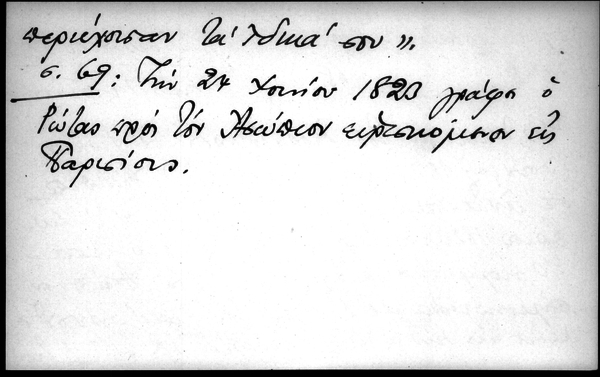 περιέχουσαν τα ἰδικά σου».
σ. 69: Τὴν 24 Ἰουνίου 1823 γράφει ὁ
Ρώτας πρὸς τὸν Ἀσώπιον εὑρισκόμενον εἰς
Παρισίους.